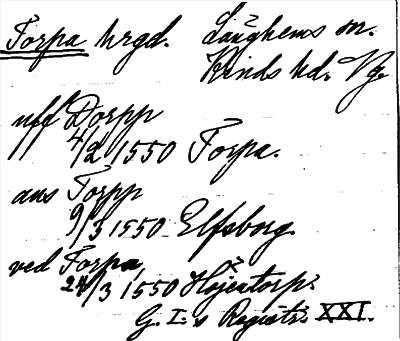 Torpa hrgd. Länghems sn.
Kinds hd. Vg.
uff Dorpp
4/2 1550 Torpa.
aus Torpp
9/3 1550 Elfsborg.
ved Torpa,
24/3 1550 Höjentorp:
G. I:s Registr: XXI.